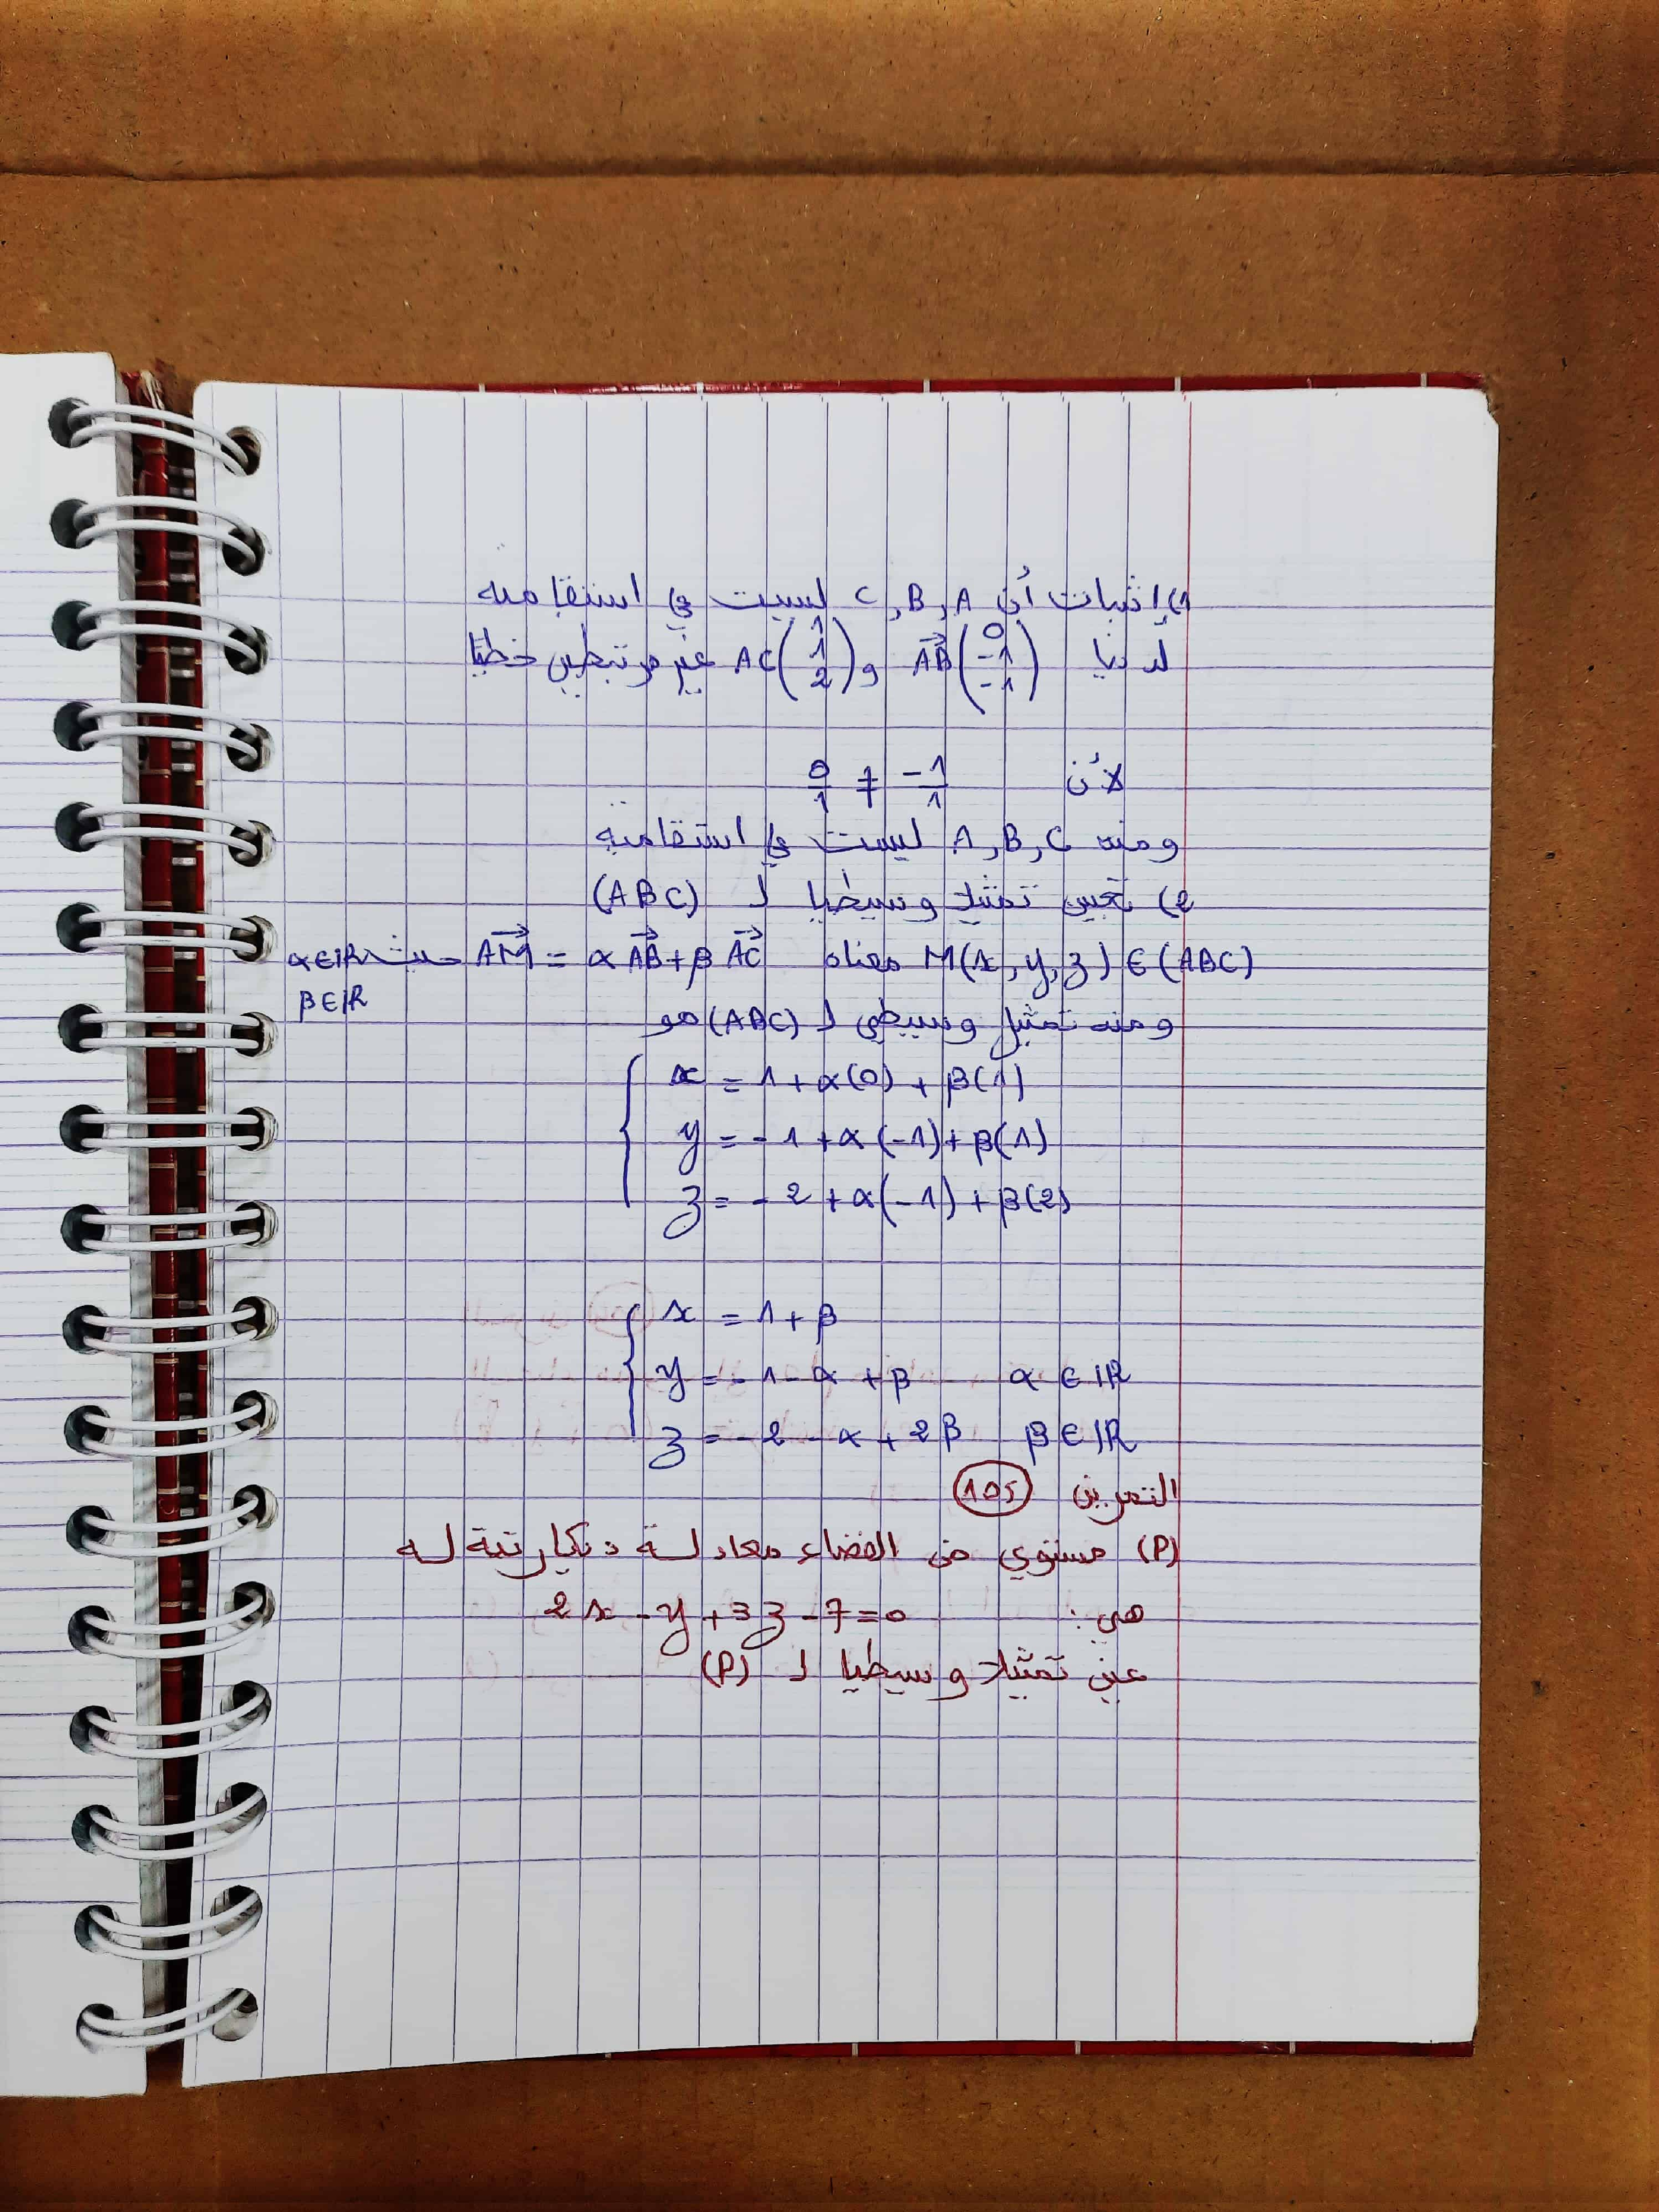 1) إثبات أن C, B, A ليست في استقامية
لدينا AB(0 -1 -1) و AC(1 1 2) غير مرتبطين خطيا
لأن -1/1 ≠ 0/1
ومنه A, B, C ليست في استقامية
2) تعيين تمثيلا وسيطيا لـ (ABC)
M(x, y, z) ∈ (ABC) معناه AM = α AB + β AC حيث α∈IR
β∈IR
ومنه تمثيل وسيطي لـ (ABC) هو
x = 1 + α(0) + β(1)
y = -1 + α(-1) + β(1)
z = -2 + α(-1) + β(2)
x = 1 + β
y = -1 - α + β α ∈ IR
z = -2 - α + 2β β ∈ IR
التمرين 105
(P) مستوي من الفضاء معادلة ديكارتية له
هي: 2x - y + 3z - 7 = 0
عين تمثيلا وسيطيا لـ (P)